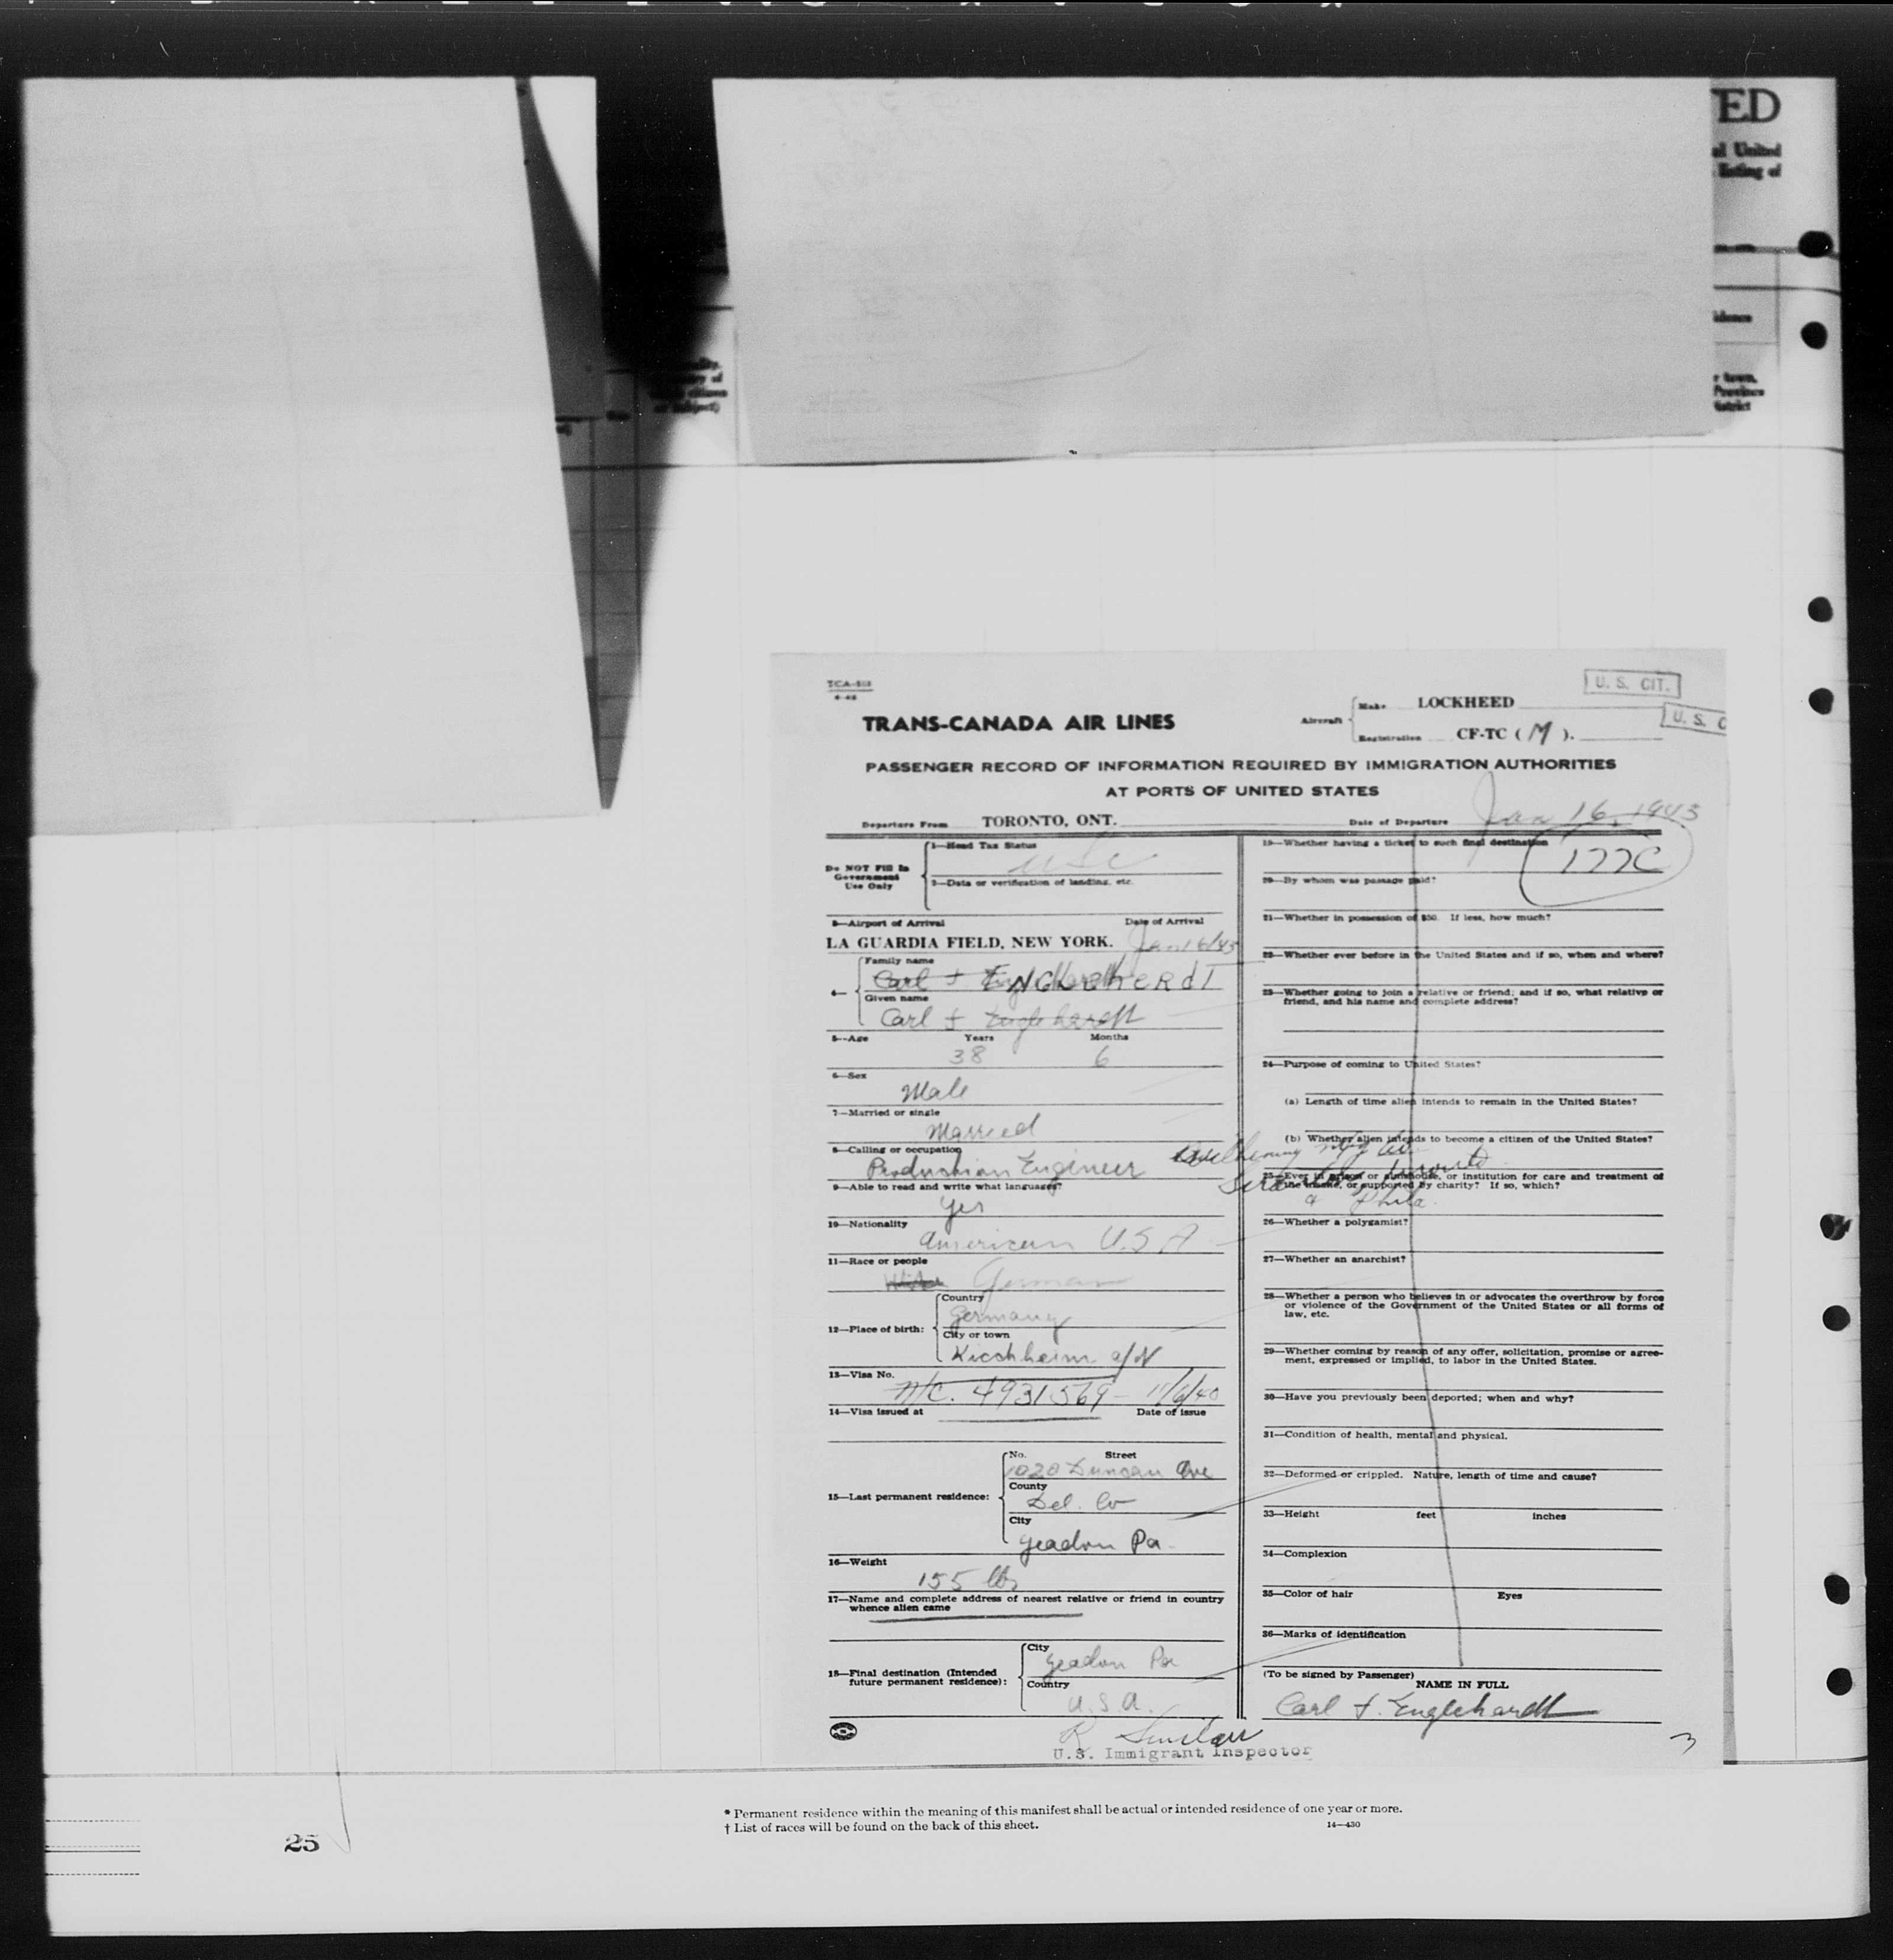 ED
al United
listing of
idence
r town,
Province
district
TCA-
4-42
U. S. CIT.
U. S. C
TRANS-CANADA AIR LINES
Aircraft
Make LOCKHEED
Registration CF-TC (M).
PASSENGER RECORD OF INFORMATION REQUIRED BY IMMIGRATION AUTHORITIES
AT PORTS OF UNITED STATES
Departure From TORONTO, ONT. Date of Departure Jan 16, 1943
Do NOT Fill In
Government
Use Only
1—Head Tax Status
USC
2—Data or verification of landing, etc.
3—Airport of Arrival Date of Arrival
LA GUARDIA FIELD, NEW YORK. Jan 16/43
4—
Family name
Carl
Given name
Carl F Englehardt
5—Age Years Months
38 6
6—Sex
Male
7—Married or single
Married
8—Calling or occupation
Production Engineer
9—Able to read and write what languages?
Yes
10—Nationality
American U.S.A
11—Race or people
White German
12—Place of birth:
Country
Germany
City or town
Kirchheim a/N
13—Visa No.
N/C. 4931569- 11/6/40
14—Visa issued at Date of issue
15—Last permanent residence:
No. Street
1020 Duncan Ave
County
Del. Co
City
Yeadon Pa.
16—Weight
155 lbs
17—Name and complete address of nearest relative or friend in country
whence alien came
18—Final destination (Intended
future permanent residence):
City
Yeadon Pa
Country
U.S.A.
R Sinclair
U.S. Immigrant Inspector
19—Whether having a ticket to such final destination
177C
20—By whom was passage paid?
21—Whether in possession of $50. If less, how much?
22—Whether ever before in the United States and if so, when and where?
23—Whether going to join a relative or friend; and if so, what relative or
friend, and his name and complete address?
24—Purpose of coming to United States?
(a) Length of time alien intends to remain in the United States?
(b) Whether alien intends to become a citizen of the United States?
Toronto
25—Ever in prison or almshouse, or institution for care and treatment of
the insane, or supported by charity? If so, which?
Phila.
26—Whether a polygamist?
27—Whether an anarchist?
28—Whether a person who believes in or advocates the overthrow by force
or violence of the Government of the United States or all forms of
law, etc.
29—Whether coming by reason of any offer, solicitation, promise or agree-
ment, expressed or implied, to labor in the United States.
30—Have you previously been deported; when and why?
31—Condition of health, mental and physical.
32—Deformed or crippled. Nature, length of time and cause?
33—Height feet inches
34—Complexion
35—Color of hair Eyes
36—Marks of identification
(To be signed by Passenger)
NAME IN FULL
Carl F. Englehardt
3
* Permanent residence within the meaning of this manifest shall be actual or intended residence of one year or more.
† List of races will be found on the back of this sheet. 14—430
25